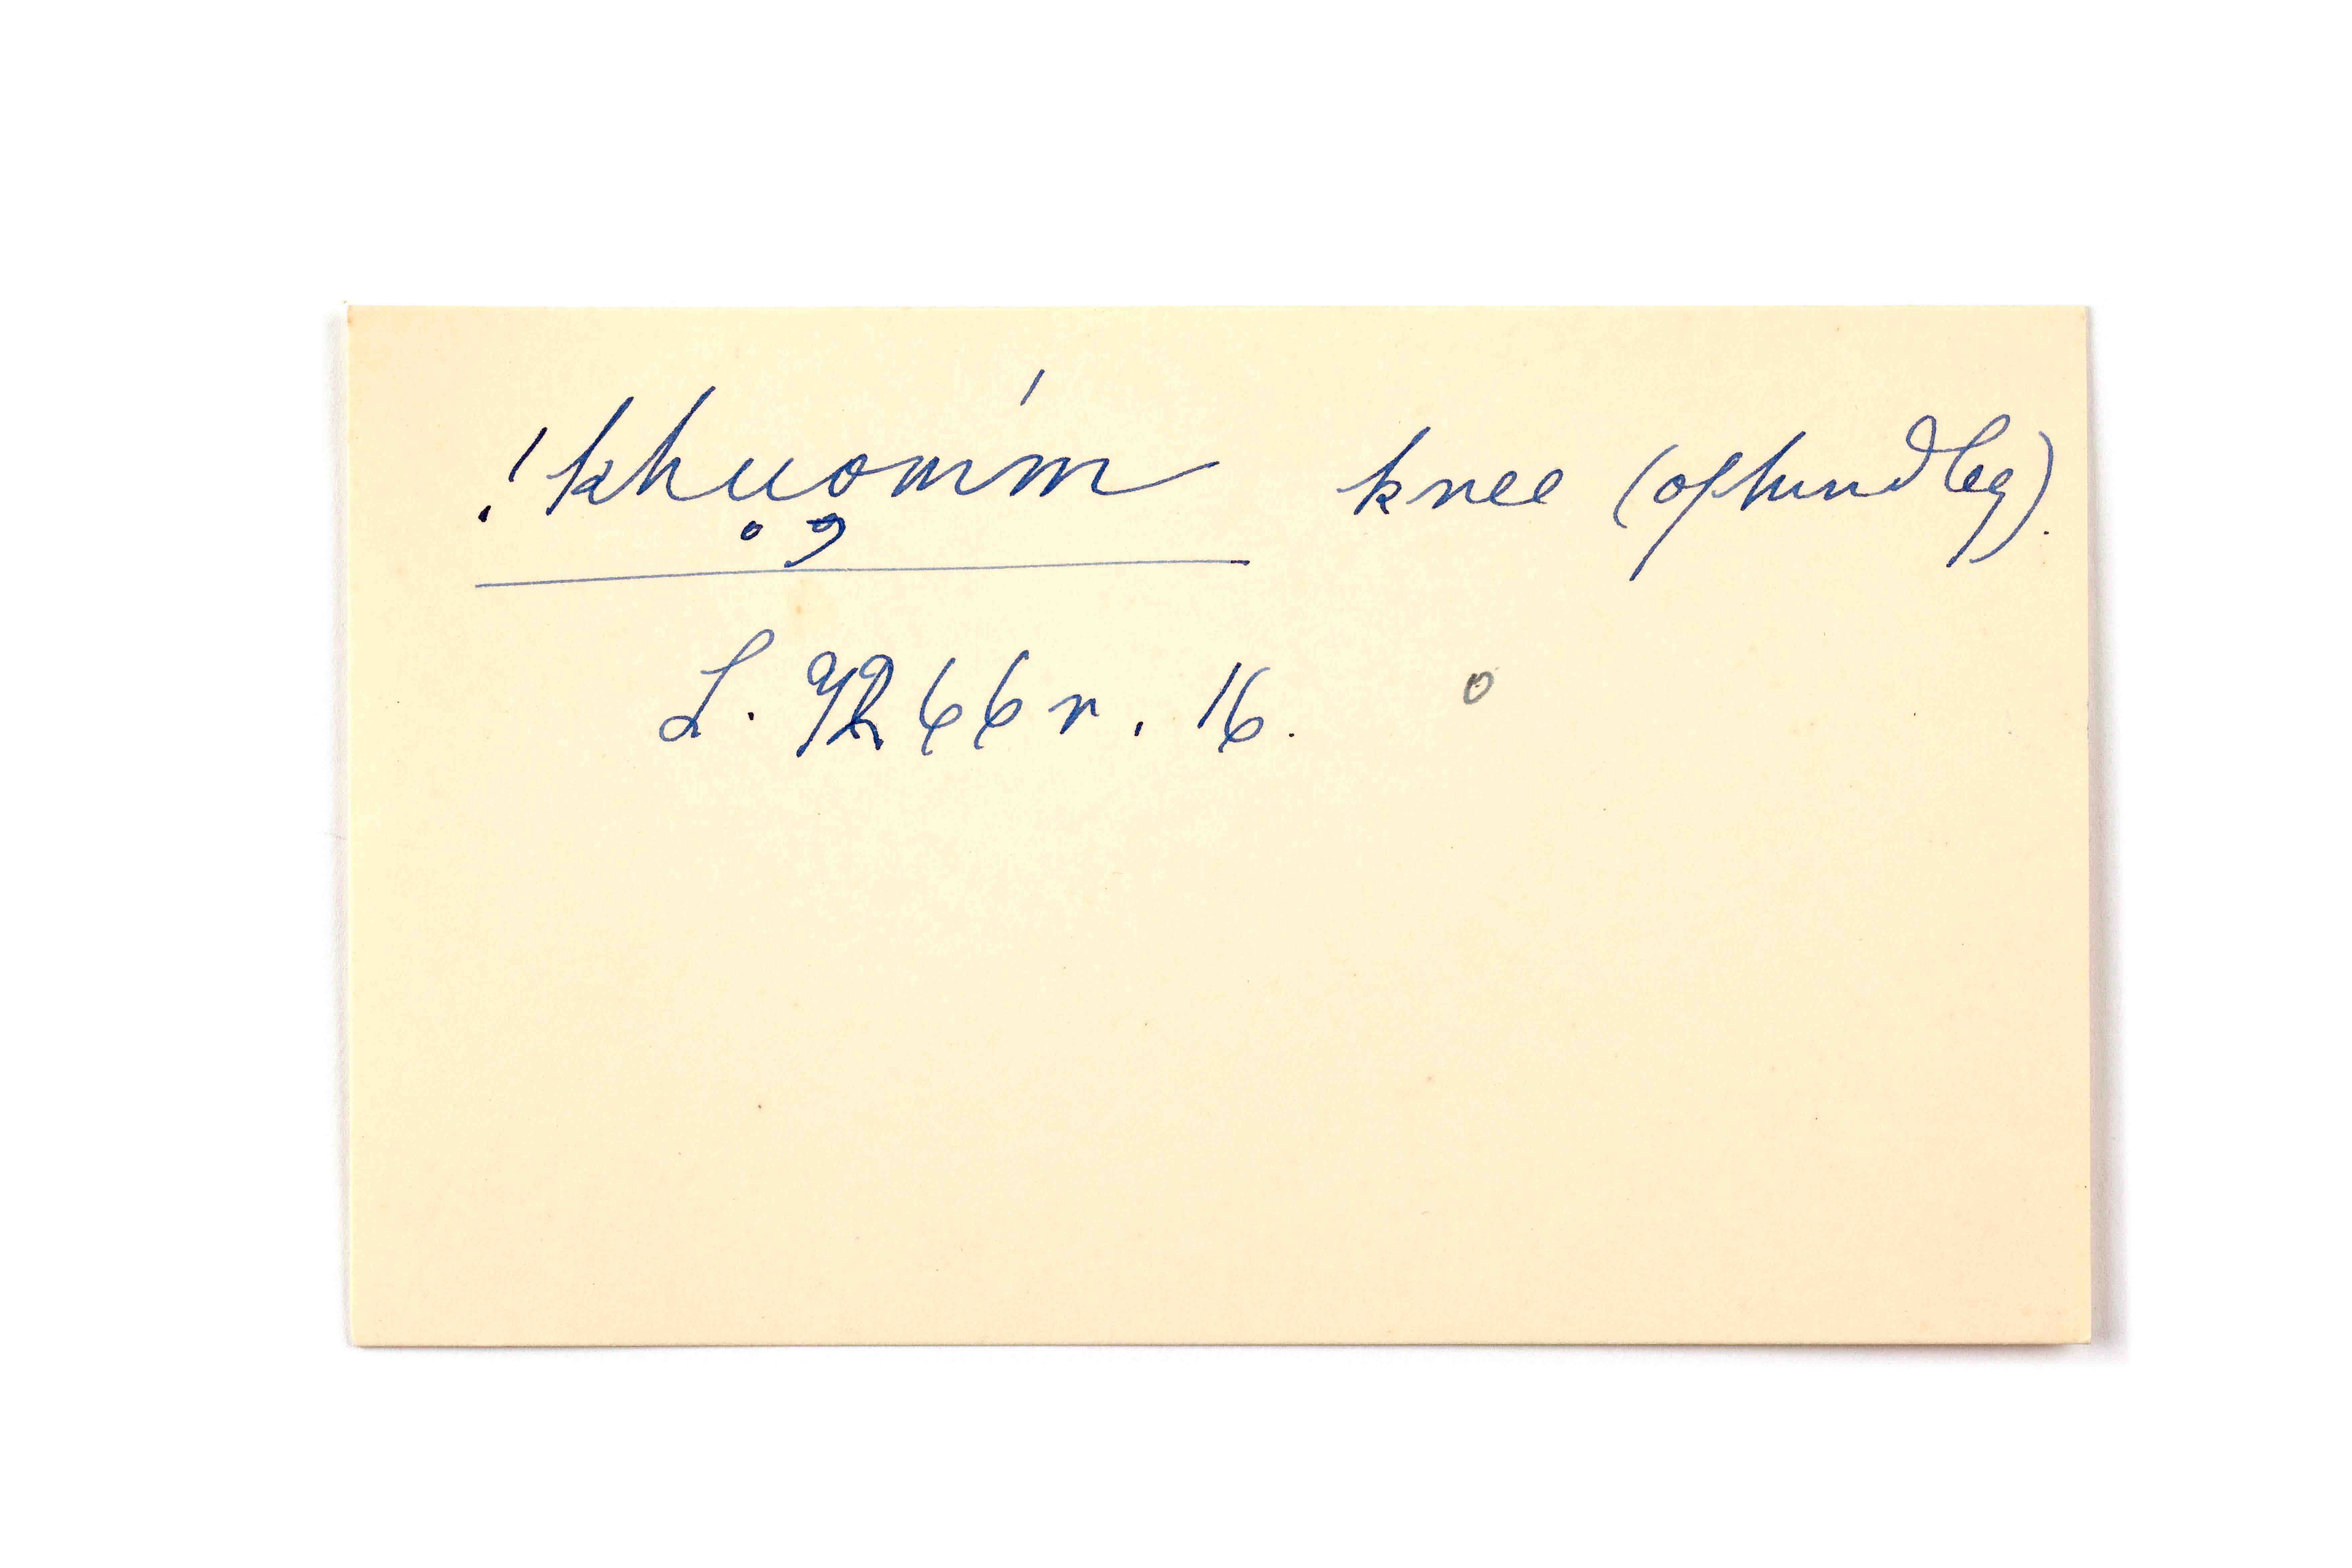 !khu̥o̡m'm knee (of hind leg).
L. 9266 r. 16. o